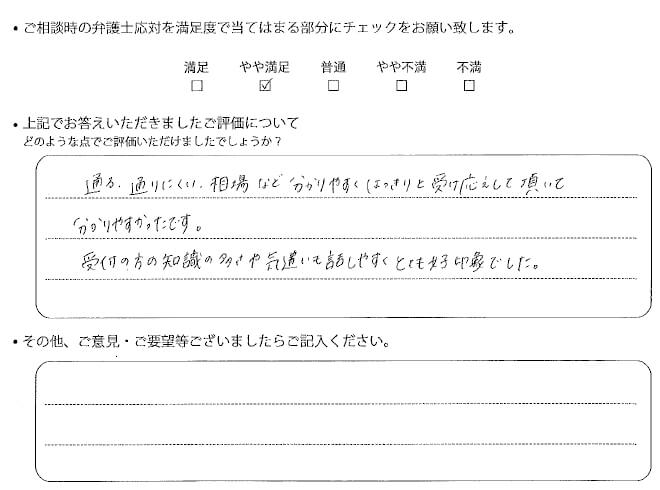 ・ご相談時の弁護士応対を満足度で当てはまる部分にチェックをお願い致します。
満足 やや満足 普通 やや不満 不満
□ ☑ □ □ □
・上記でお答えいただきましたご評価について
どのような点でご評価いただけましたでしょうか？
通る、通りにくい、相場など分かりやすくはっきりと受け応えして頂いて
分かりやすかったです。
受付の方の知識の多さや気遣いも話しやすくとても好印象でした。
・その他、ご意見・ご要望等ございましたらご記入ください。